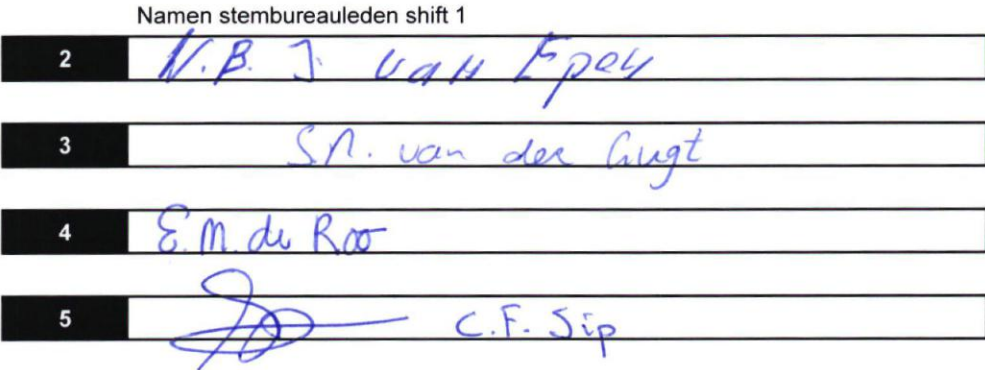 Namen stembureauleden shift 1
2 N.B. J. van Epen
3 S.N. van der Gugt
4 E.M. de Roo
5 C.F. Sip